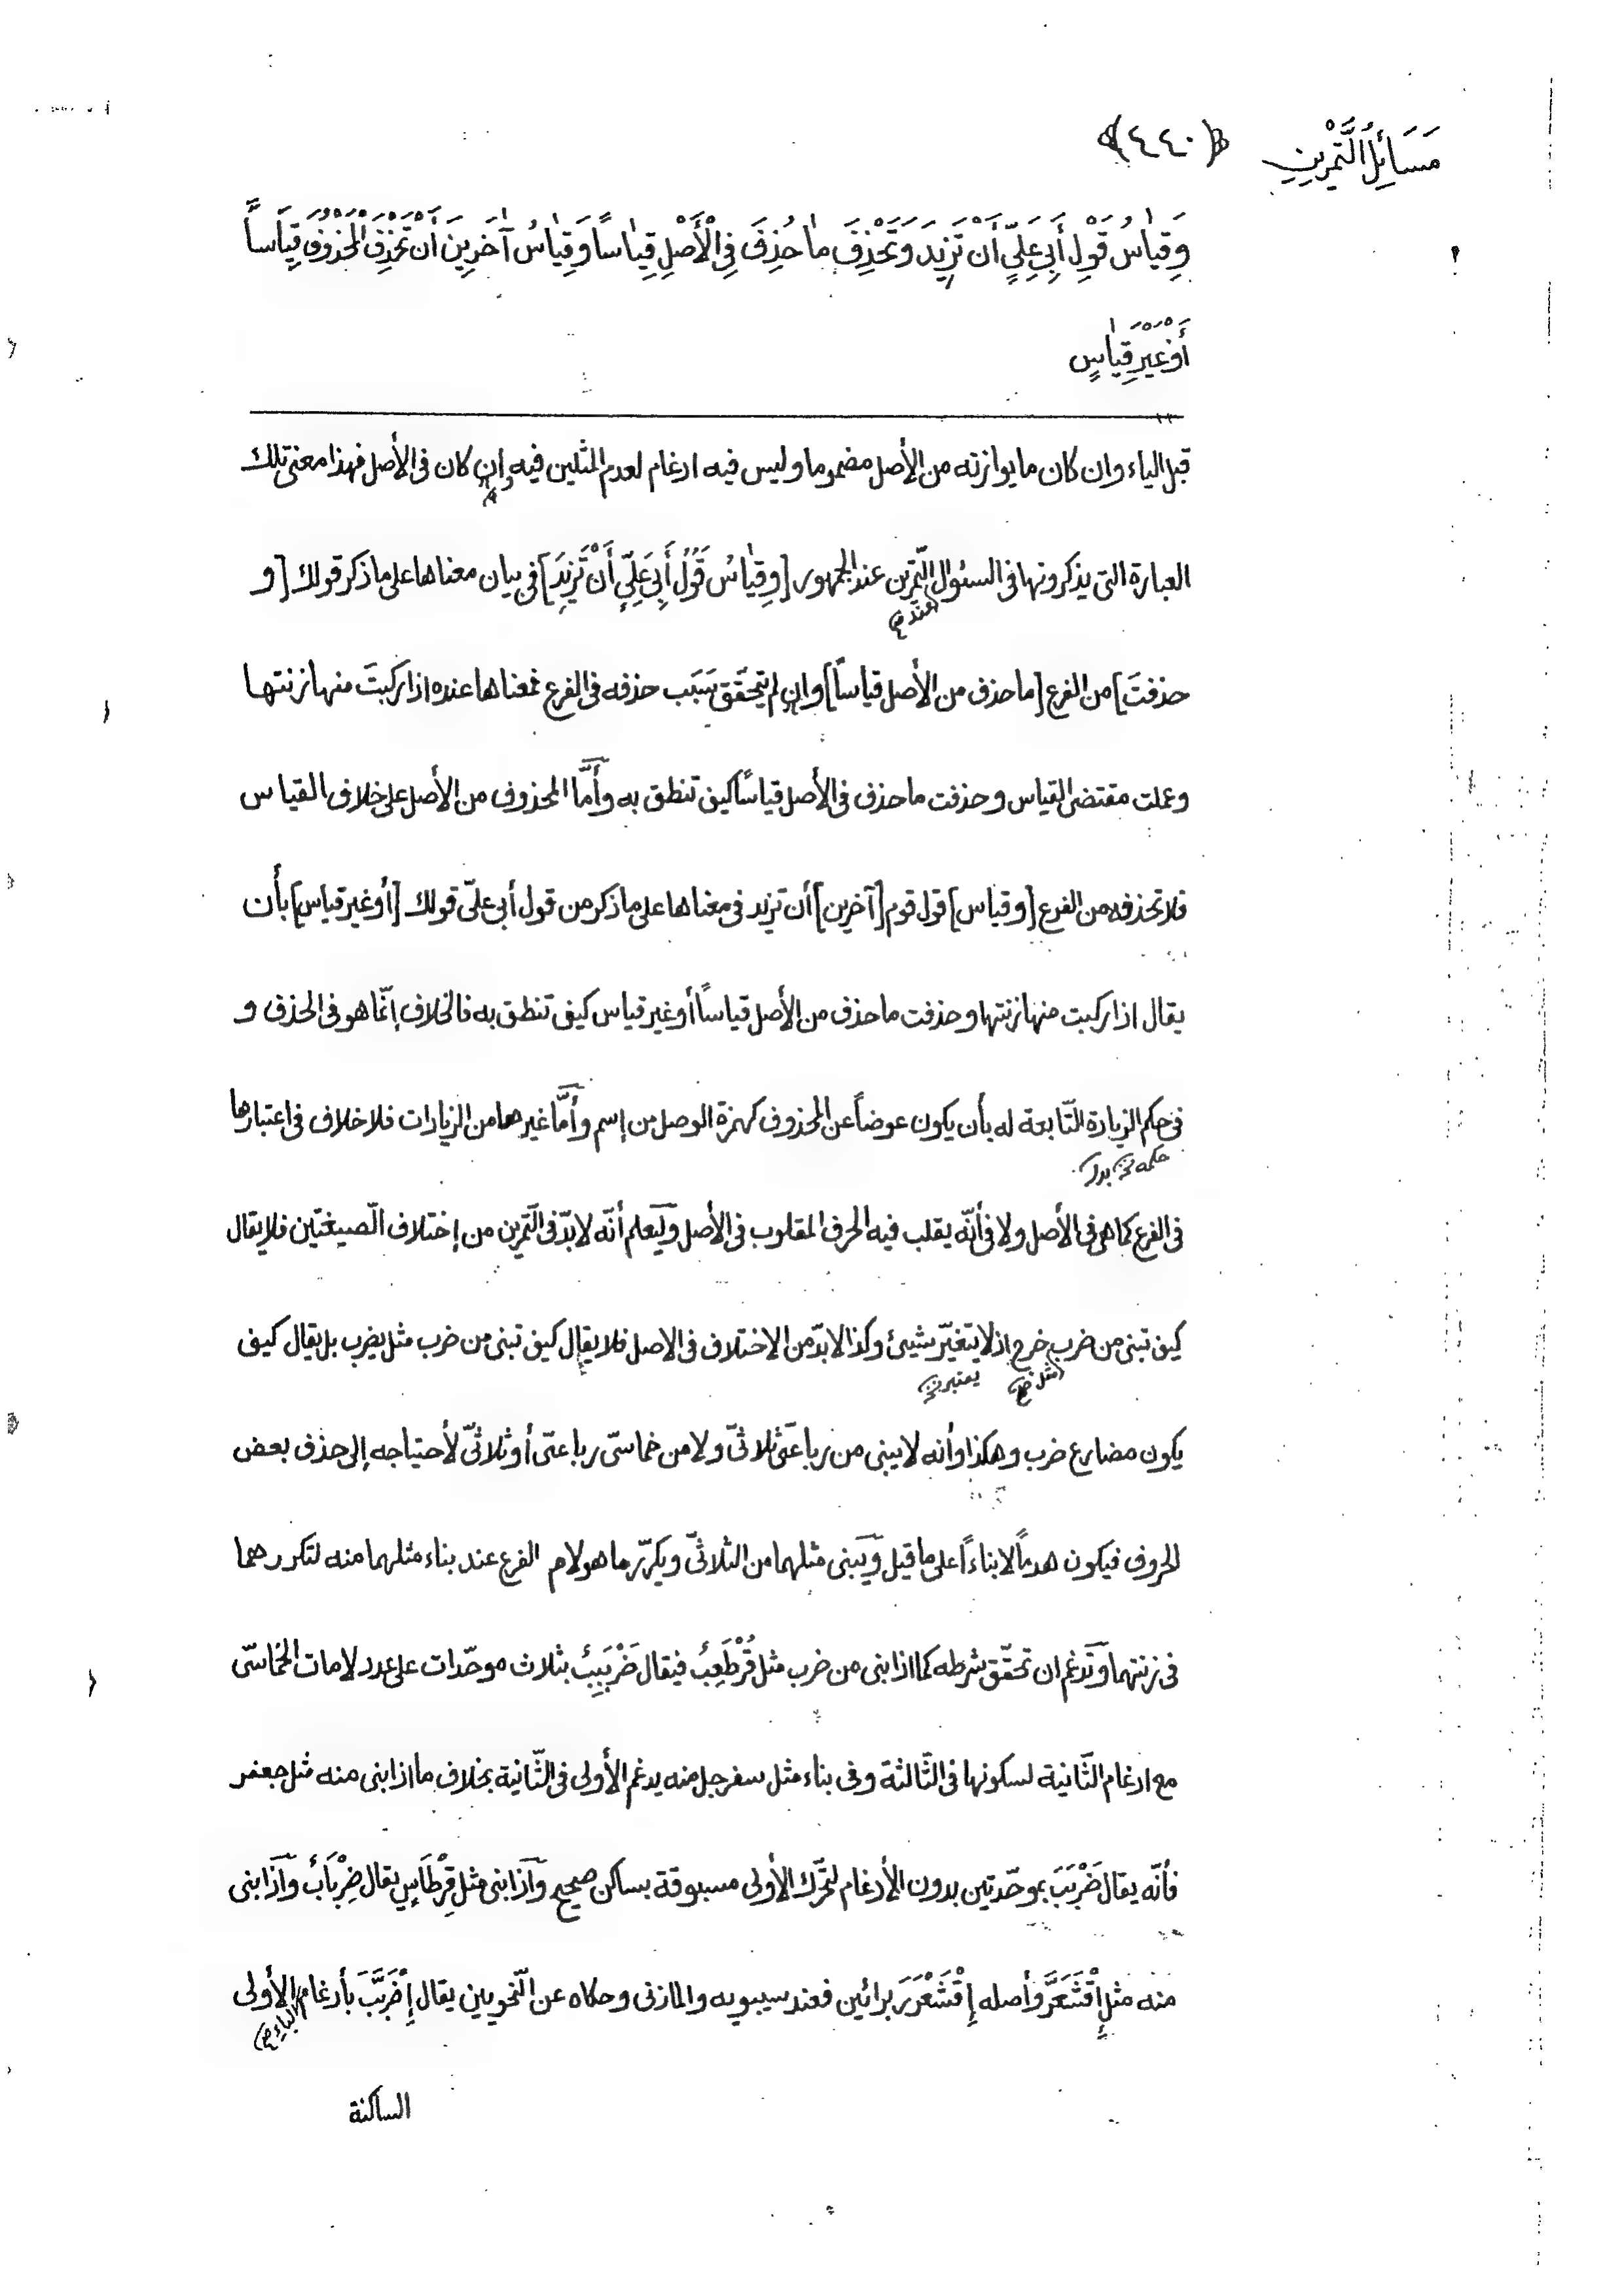 مَسَائِلُ الَّتمْرِينِ ﴿٤٤٠﴾
وَقِيٰاسُ قَوْلِ أَبِي عَلِيٍّ أَنْ تَزِيدَ وَتَحْذِفَ مٰا حُذِفَ فِي الْأَصْلِ قِيٰاسًا وَقِيٰاسُ آخَرِينَ أَنْ تَحْذِفَ الْمَحْذُوفَ قِيٰاساً
أَوْغَيْرَ قِيٰاسٍ
قبل الياء وان كان ما يوازنه من الأصل مضموما وليس فيه ادغام لعدم المثلين فيه وان كان فى الأصل فهذا معنى تلك
العبارة التى يذكرونها فى السئوال التّمرين عند الجمهور [وَقِيٰاسُ قَوْلِ أَبِى عَلِيٍّ أَنْ تَزِيدَ] فى بيان معناها على ما ذكر قولك [و
(عند م)
حذفتَ] من الفرع [ما حذف من الأصل قياساً] وان لم يتحقّق سَبَب حذفه فى الفرع فمعناها عنده اذا ركبتَ منها زنتها
وعملت مقتضى القياس وحذفت ما حذف فى الأصل قياسًا كيف تنطق به وأمَّا المحذوف من الأصل على خلاف القياس
فلا تحذفه من الفرع [وقياس] قول قوم [آخرين] أن تزيد فى معناها على ما ذكر من قول أبى علىّ قولك [أو غير قياس] بأن
يقال اذا ركبت منها زنتها وحذفت ما حذف من الأصل قياسًا أو غير قياس كيف تنطق به فالخلاف إنّما هو فى الحذف و
فى حكم الزيادة التّابعة له بأن يكون عوضاً عن المحذوف كهمزة الوصل من إسم وأمَّا غيرهما من الزيادات فلا خلاف فى اعتبارها
حكمه خ بدل
فى الفرع كما هى فى الأصل ولا فى أنّه يقلب فيه الحرف المقلوب فى الأصل وليعلم أنّه لا بدّ فى التّمرين من إختلاف الّصيغتين فلا يقال
كيف تبنى من ضرب خرج اذ لا يتغيّر شيئ وكذا لا بدّ من الاختلاف فى الاصل فلا يقال كيف تبنى من ضرب مثل يضرب بل يقال كيف
(مثل خ) يعتبر خ
يكون مضارع ضرب وهكذا وأنه لا يبنى من رباعىّ ثلاثىّ ولا من خماسىّ رباعىّ أو ثلاثىّ لأحتياجه إلى حذف بعض
الحروف فيكون هدماً لا بناءاً على ما قيل ويبنى مثلهما من الثلاثىّ ويكرّر ما هو لام الفرع عند بناء مثلهما منه لتكررهما
فى زنتهما وتدغم ان تحقّق شرطه كما اذا بنى من ضرب مثل قُرْطَعِبٌ فيقال ضَرْبَبِبٌ بثلاث موحّدات على عدد لامات الخماسّى
مع ادغام الثّانية لسكونها فى الثّالثة وفى بناء مثل سفرجل منه يدغم الأولى فى الثّانية بخلاف ما اذا بنى منه مثل جعفر
فأنّه يقال ضَرْبَبَ بموحّدتين بدون الأدغام لتحّرك الأولى مسبوقة بساكن صحيح واذا بنى مثل قِرْطَاسٍ يقال ضِرْبَابٌ واذا بنى
منه مثل إِقْشَعَرَّ وأصله إِقْشَعْرَرَ برائين فعند سيبويه والمازنى وحكاه عن النّحويين يقال إِضْرَبَّبَ بأدغام الأولى
(الباء خ)
الساكنة